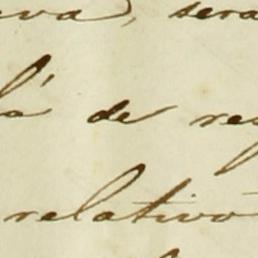 eva, sera
lá de res
relativo